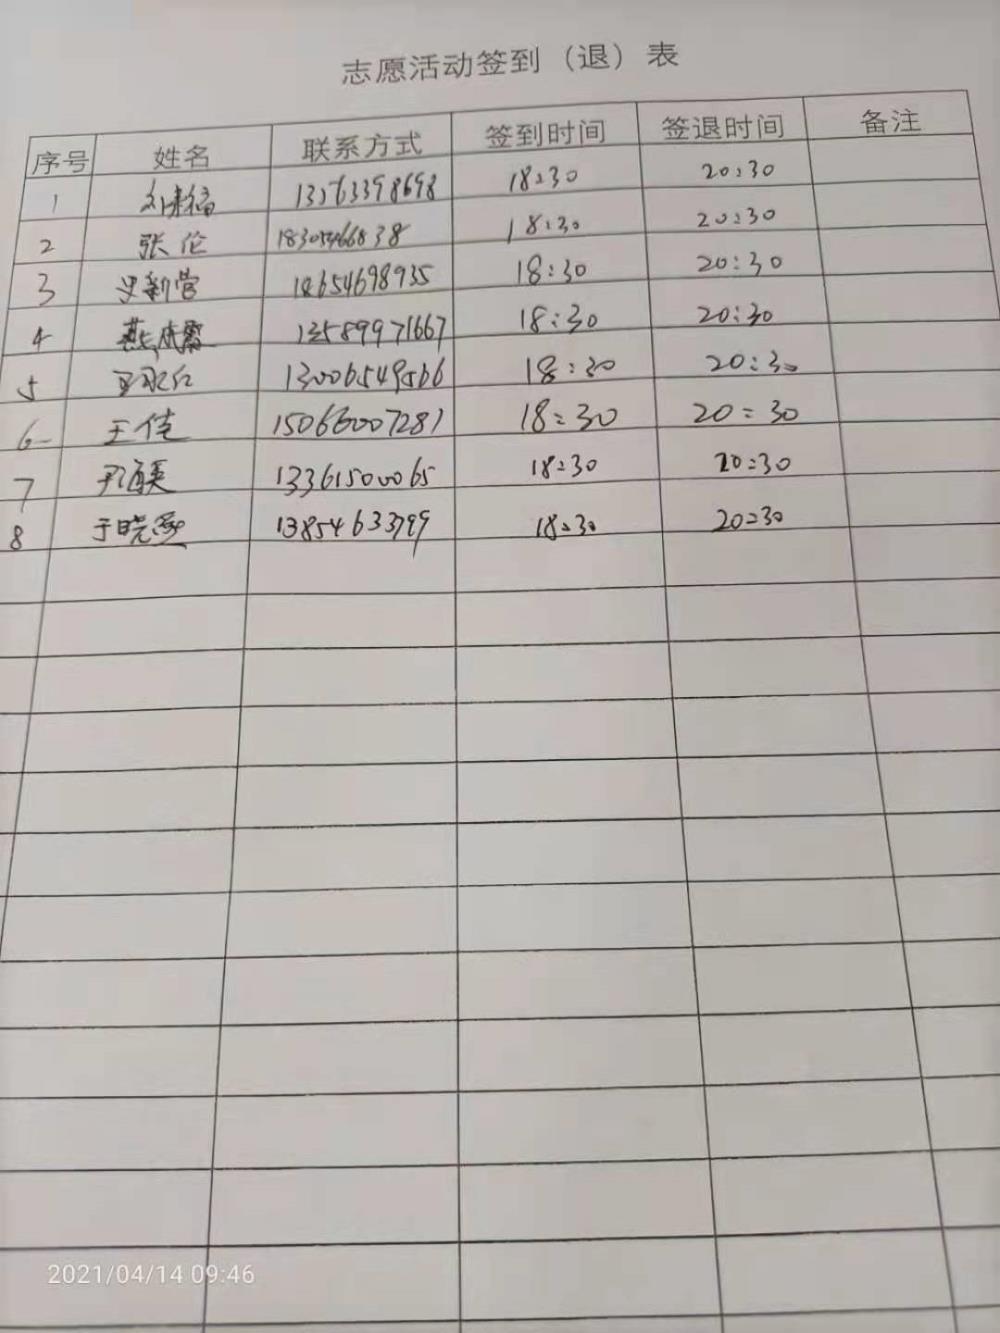 志愿活动签到（退）表
序号 姓名 联系方式 签到时间 签退时间 备注
1 18:30 20:30
2 张伦 18:30 20:30
3 史新营 18654698935 18:30 20:30
4 13589971667 18:30 20:30
5 13006549566 18:30 20:30
6 王佳 15066007281 18:30 20:30
7 13361500065 18:30 20:30
8 于晓 13854633799 18:30 20:30
2021/04/14 09:46